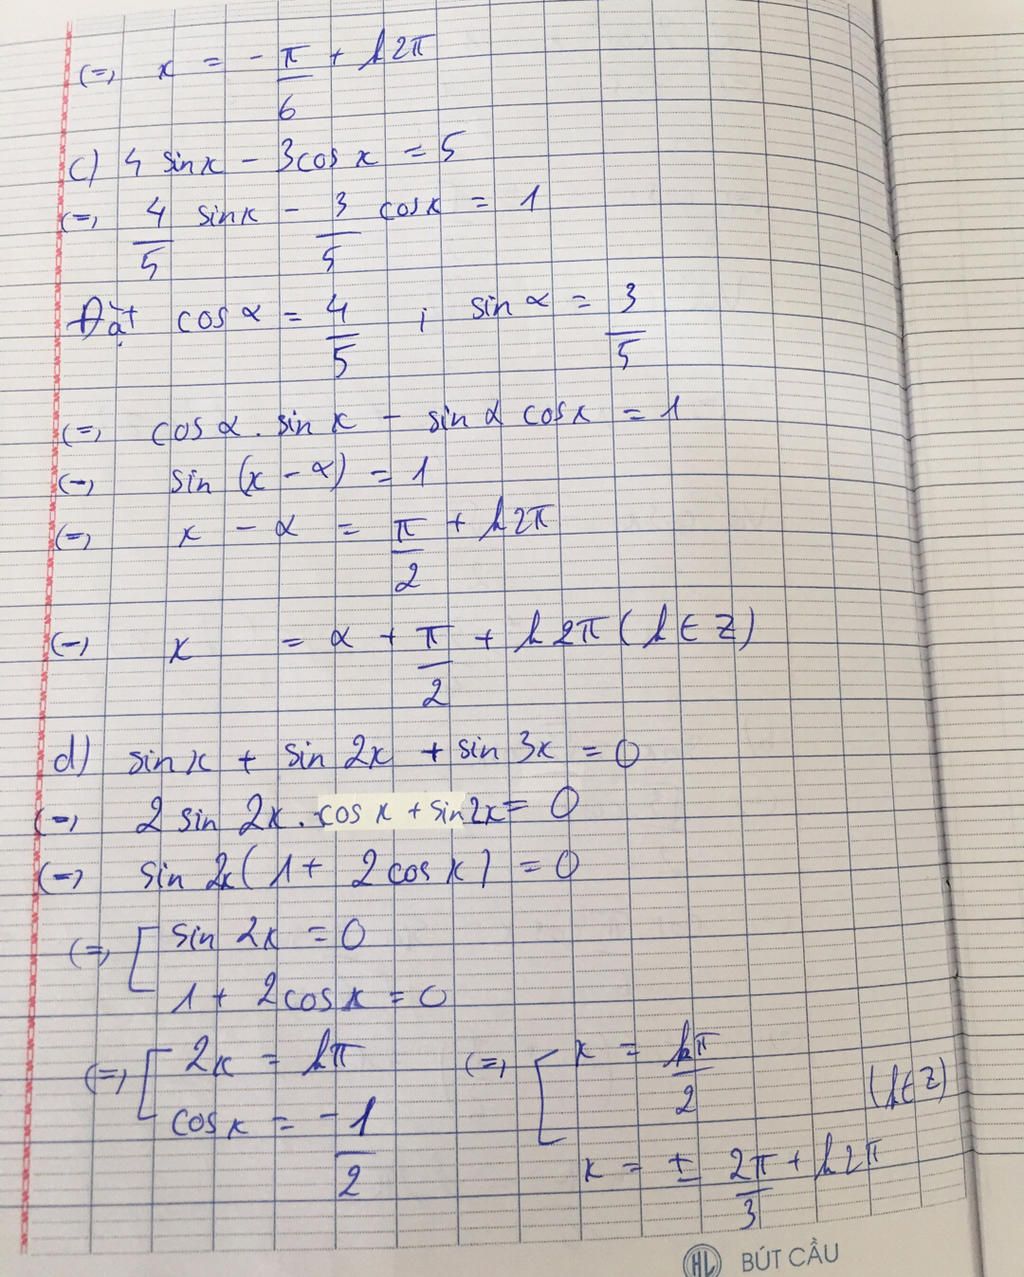 (=) x = - π/6 + k2π
c) 4 sinx - 3cos x = 5
(=) 4/5 sinx - 3/5 cosx = 1
Đặt cos α = 4/5 ; sin α = 3/5
(=) cos α. sin x - sin α cosx = 1
(=) sin (x - α) = 1
(=) x - α = π/2 + k2π
(=) x = α + π/2 + k2π (k ∈ Z)
d) sinx + sin 2x + sin 3x = 0
(=) 2 sin 2x. cos x + sin2x = 0
(=) sin 2x(1 + 2cosx) = 0
(=) [ sin 2x = 0
1 + 2cosx = 0
(=) [ 2x = kπ (=) [ x = kπ/2
cosx = -1/2 (k∈Z)
x = ± 2π/3 + k2π
HL BÚT CẦU